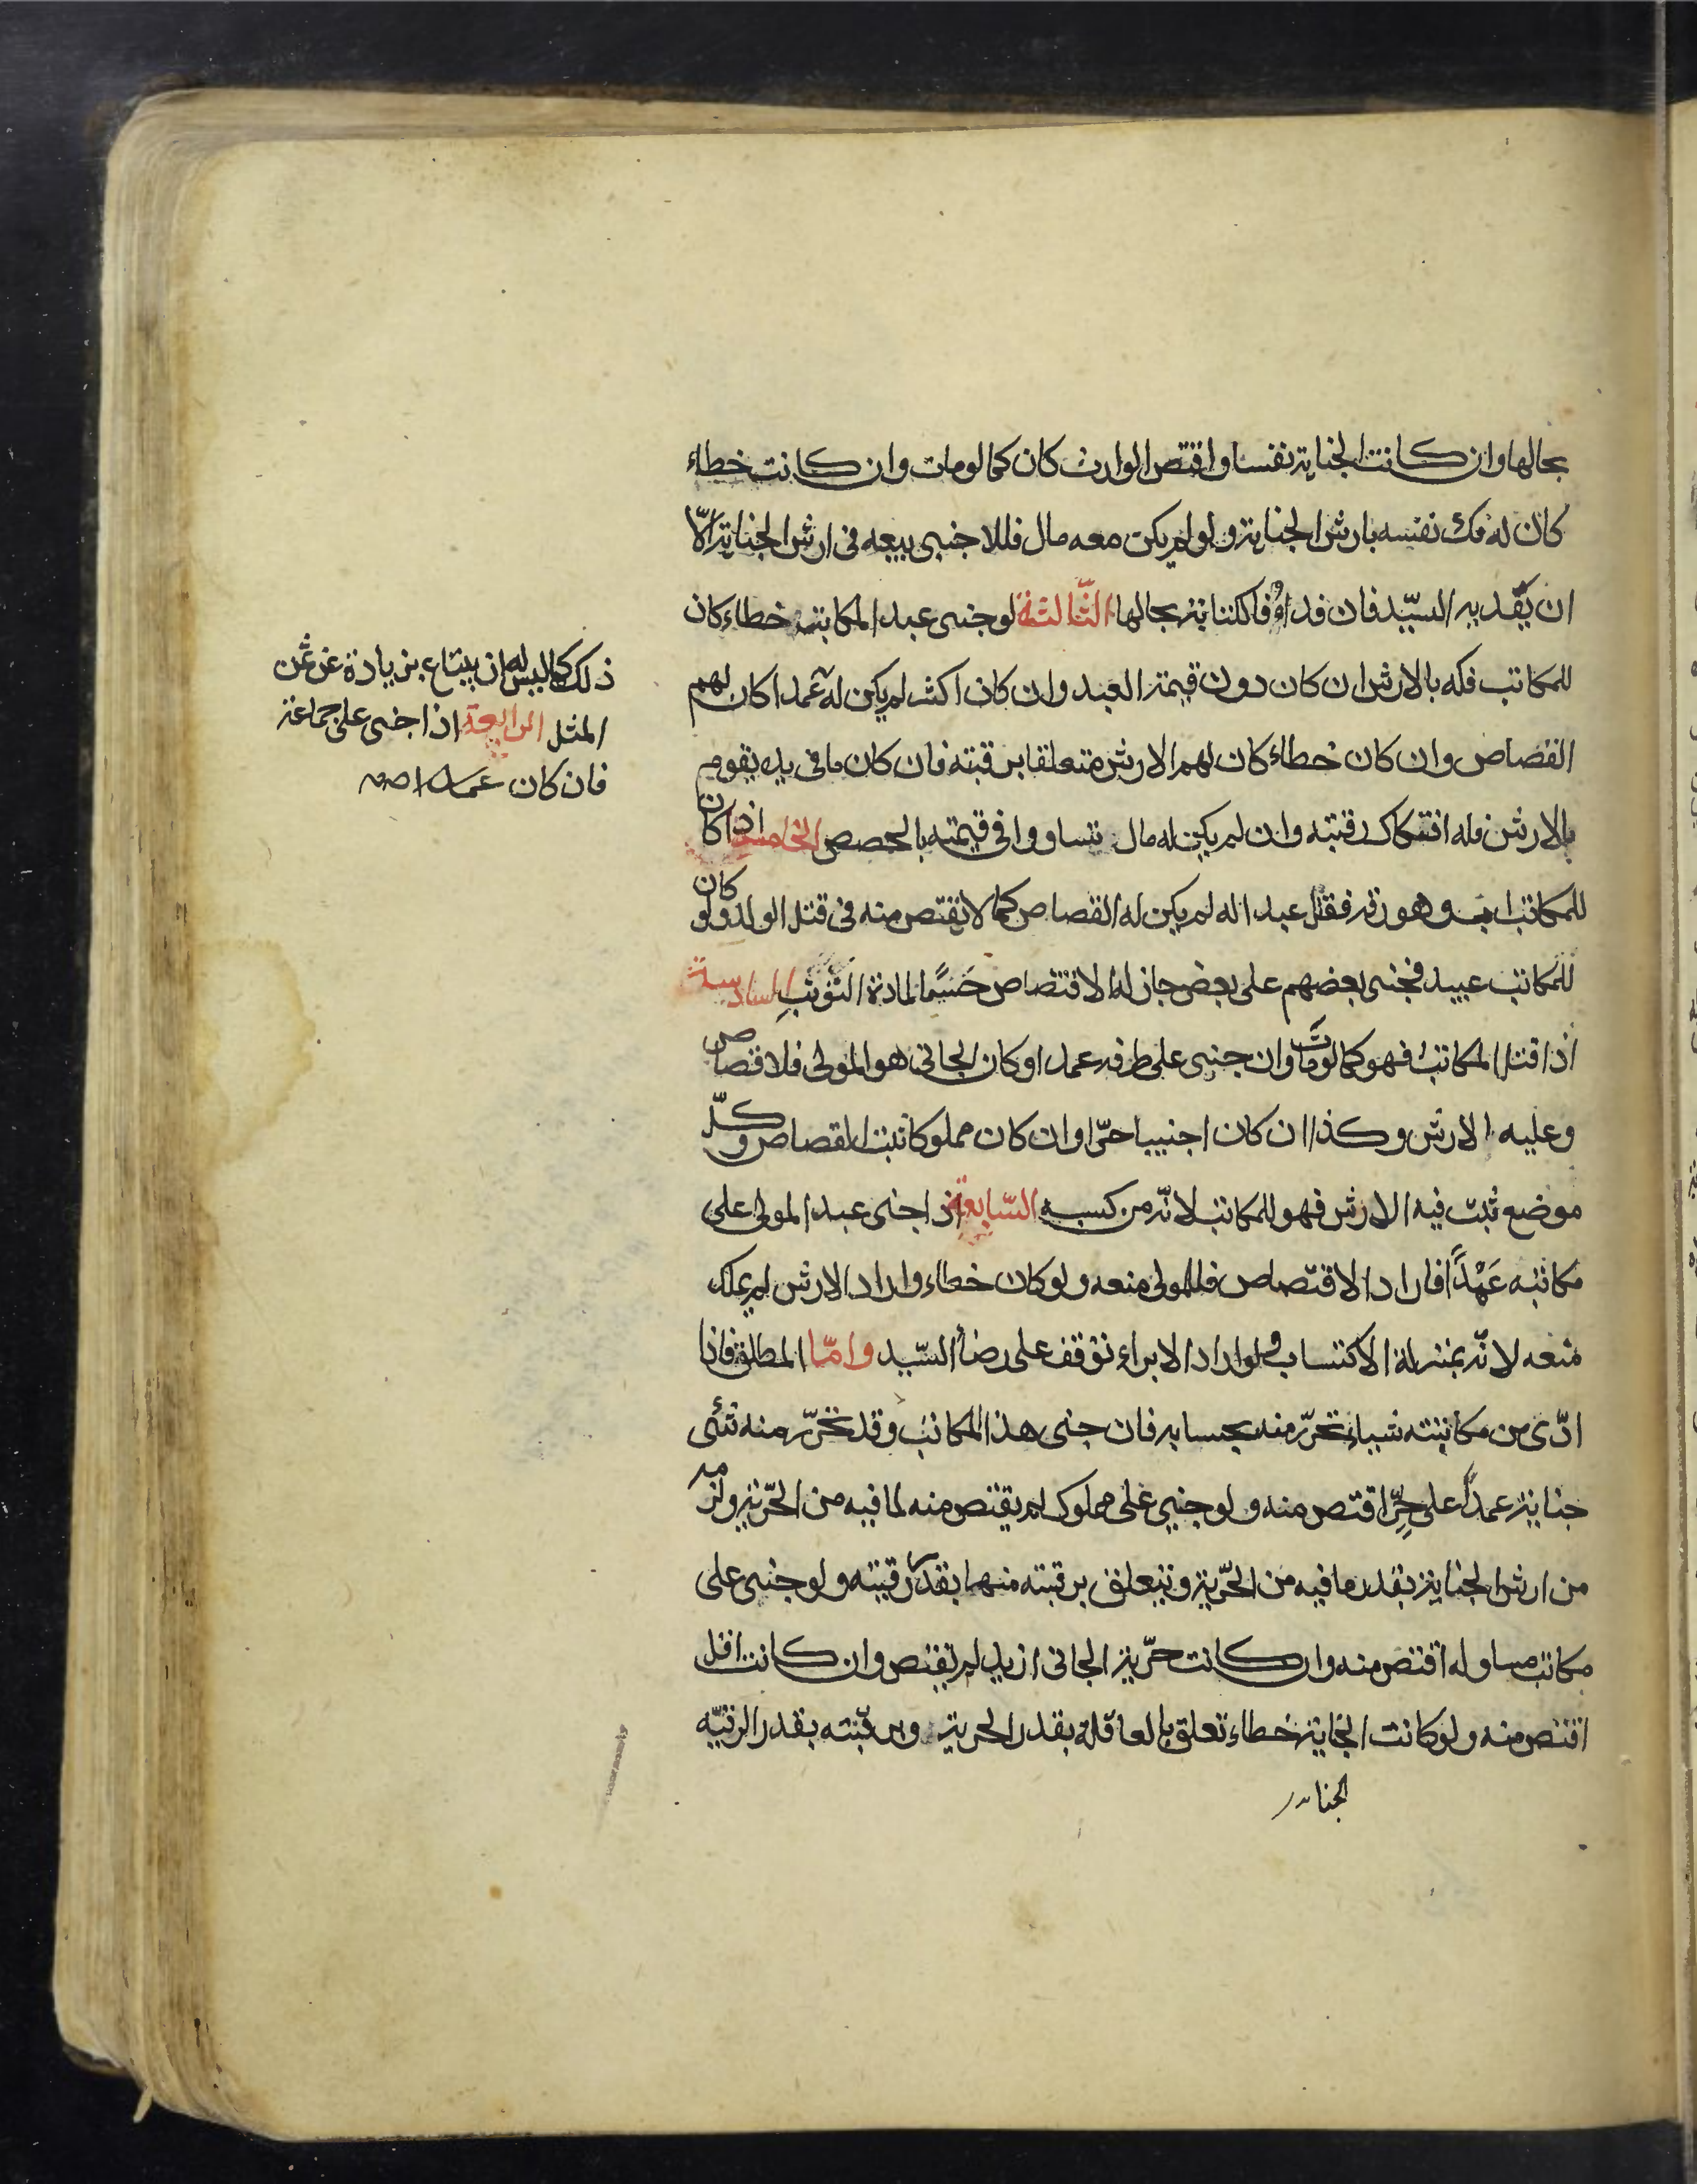 بحالها وان كانت الجناية نفسا واقتص الوارث كان كما لو مات وان كانت خطاء
كان له فك نفسه بارش الجناية ولو لم يكن معه مال فللاجنبي بيعه في ارش الجناية الّا
ان يفديه السيّد فان فداؤه فالكتابة بحالها الثالثة لو جنى عبد المكاتب خطاء كان
للمكاتب فكه بالارش ان كان دون قيمة العبد وان كان اكثر لم يكن له عمدا كان لهم
القصاص وان كان خطاء كان لهم الارش متعلقا برقبته فان كان ما في يده يقوم
بالارش فله افتكاك رقبته وان لم يكن له مال تساووا في قيمته بالحصص الخامسة اذا كان
للمكاتب اب وهو رق فقتل عبدا له لم يكن له القصاص كما لا يقتص منه في قتل الولد ولو كان
للمكاتب عبيد فجنى بعضهم على بعض جاز له الاقتصاص حَسمًا لمادة التوثب السادسة
اذا قتل المكاتب فهو كما لو مات وان جنى على طرفه عمدا وكان الجاني هو المولى فلا قصاص
وعليه الارش وكذا ان كان اجنبيا حرّا وان كان مملوكا ثبت القصاص وكلّ
موضع ثبت فيه الارش فهو للمكاتب لانّه من كسبه السّابعة اذا جنى عبد المولى على
مكاتبه عَمْدًا فاراد الاقتصاص فللمولى منعه ولو كان خطاء واراد الارش لم يملك
منعه لانّه بمنزلة الاكتساب ولو اراد الابراء توقف على رضا السّيد وامّا المطلق فاذا
ادّى من مكاتبته شياء تحرّر منه بحسابه فان جنى هذا المكاتب وقد تحرّر منه شئ
جناية عمدًا على حرّ اقتص منه ولو جنى على مملوك لم يقتص منه لما فيه من الحرّية ولزمه
من ارش الجناية بقدر ما فيه من الحرّية ويتعلق برقبته منها بقدر رقيته ولو جنى على
مكاتب مساو له اقتص منه وان كانت حرّية الجاني ازيد لم يقتص وان كانت اقل
اقتص منه ولو كانت الجناية خطاء تعلق بالعاقلة بقدر الحرية وبرقبته بقدر الرقيّه
ذلك كما ليس له ان يبتاع بزيادة عن ثمن
المثل الرابعة اذا جنى على جماعة
فان كان عمدا